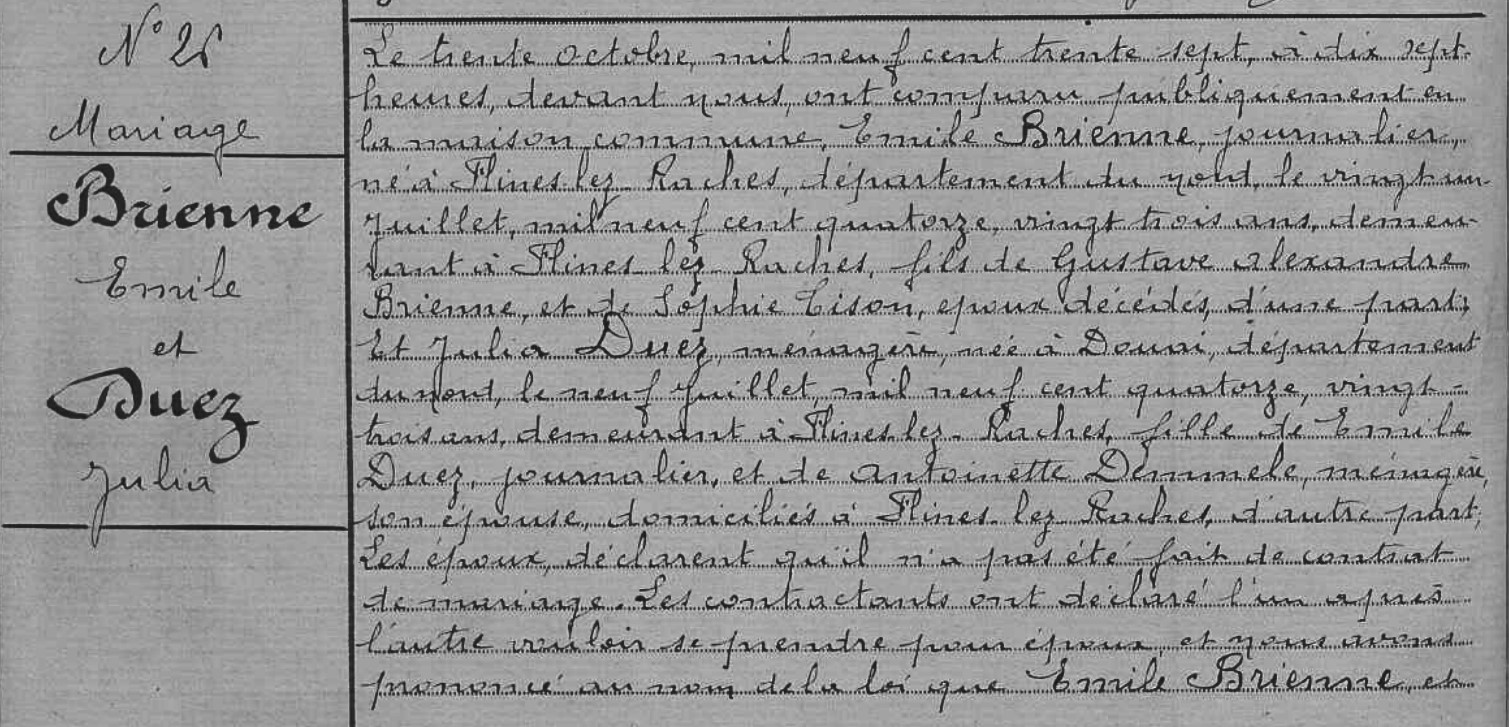 N° 26
Mariage
Brienne
Emile
et
Duez
Julia
Le trente octobre, mil neuf cent trente sept, à dix sept
heures, devant nous, ont comparu publiquement en
la maison commune, Emile Brienne, journalier,
né à Flines lez Raches, département du nord, le vingt un
Juillet, mil neuf cent quatorze, vingt trois ans, demeu-
rant à Flines lez Raches, fils de Gustave Alexandre
Brienne, et de Sophie Tison, époux décédés, d'une part;
Et Julia Duez, ménagère, née à Douai, département
du nord, le neuf Juillet, mil neuf cent quatorze, vingt-
trois ans, demeurant à Flines lez-Raches, fille de Emile
Duez, journalier, et de Antoinette Demmele, ménagère,
son épouse, domiciliés à Flines lez Raches, d'autre part;
Les époux, déclarent qu'il n'a pas été fait de contrat
de mariage. Les contractants ont déclaré l'un après
l'autre vouloir se prendre pour époux, et nous avons
prononcé au nom de la loi que Emile Brienne, et